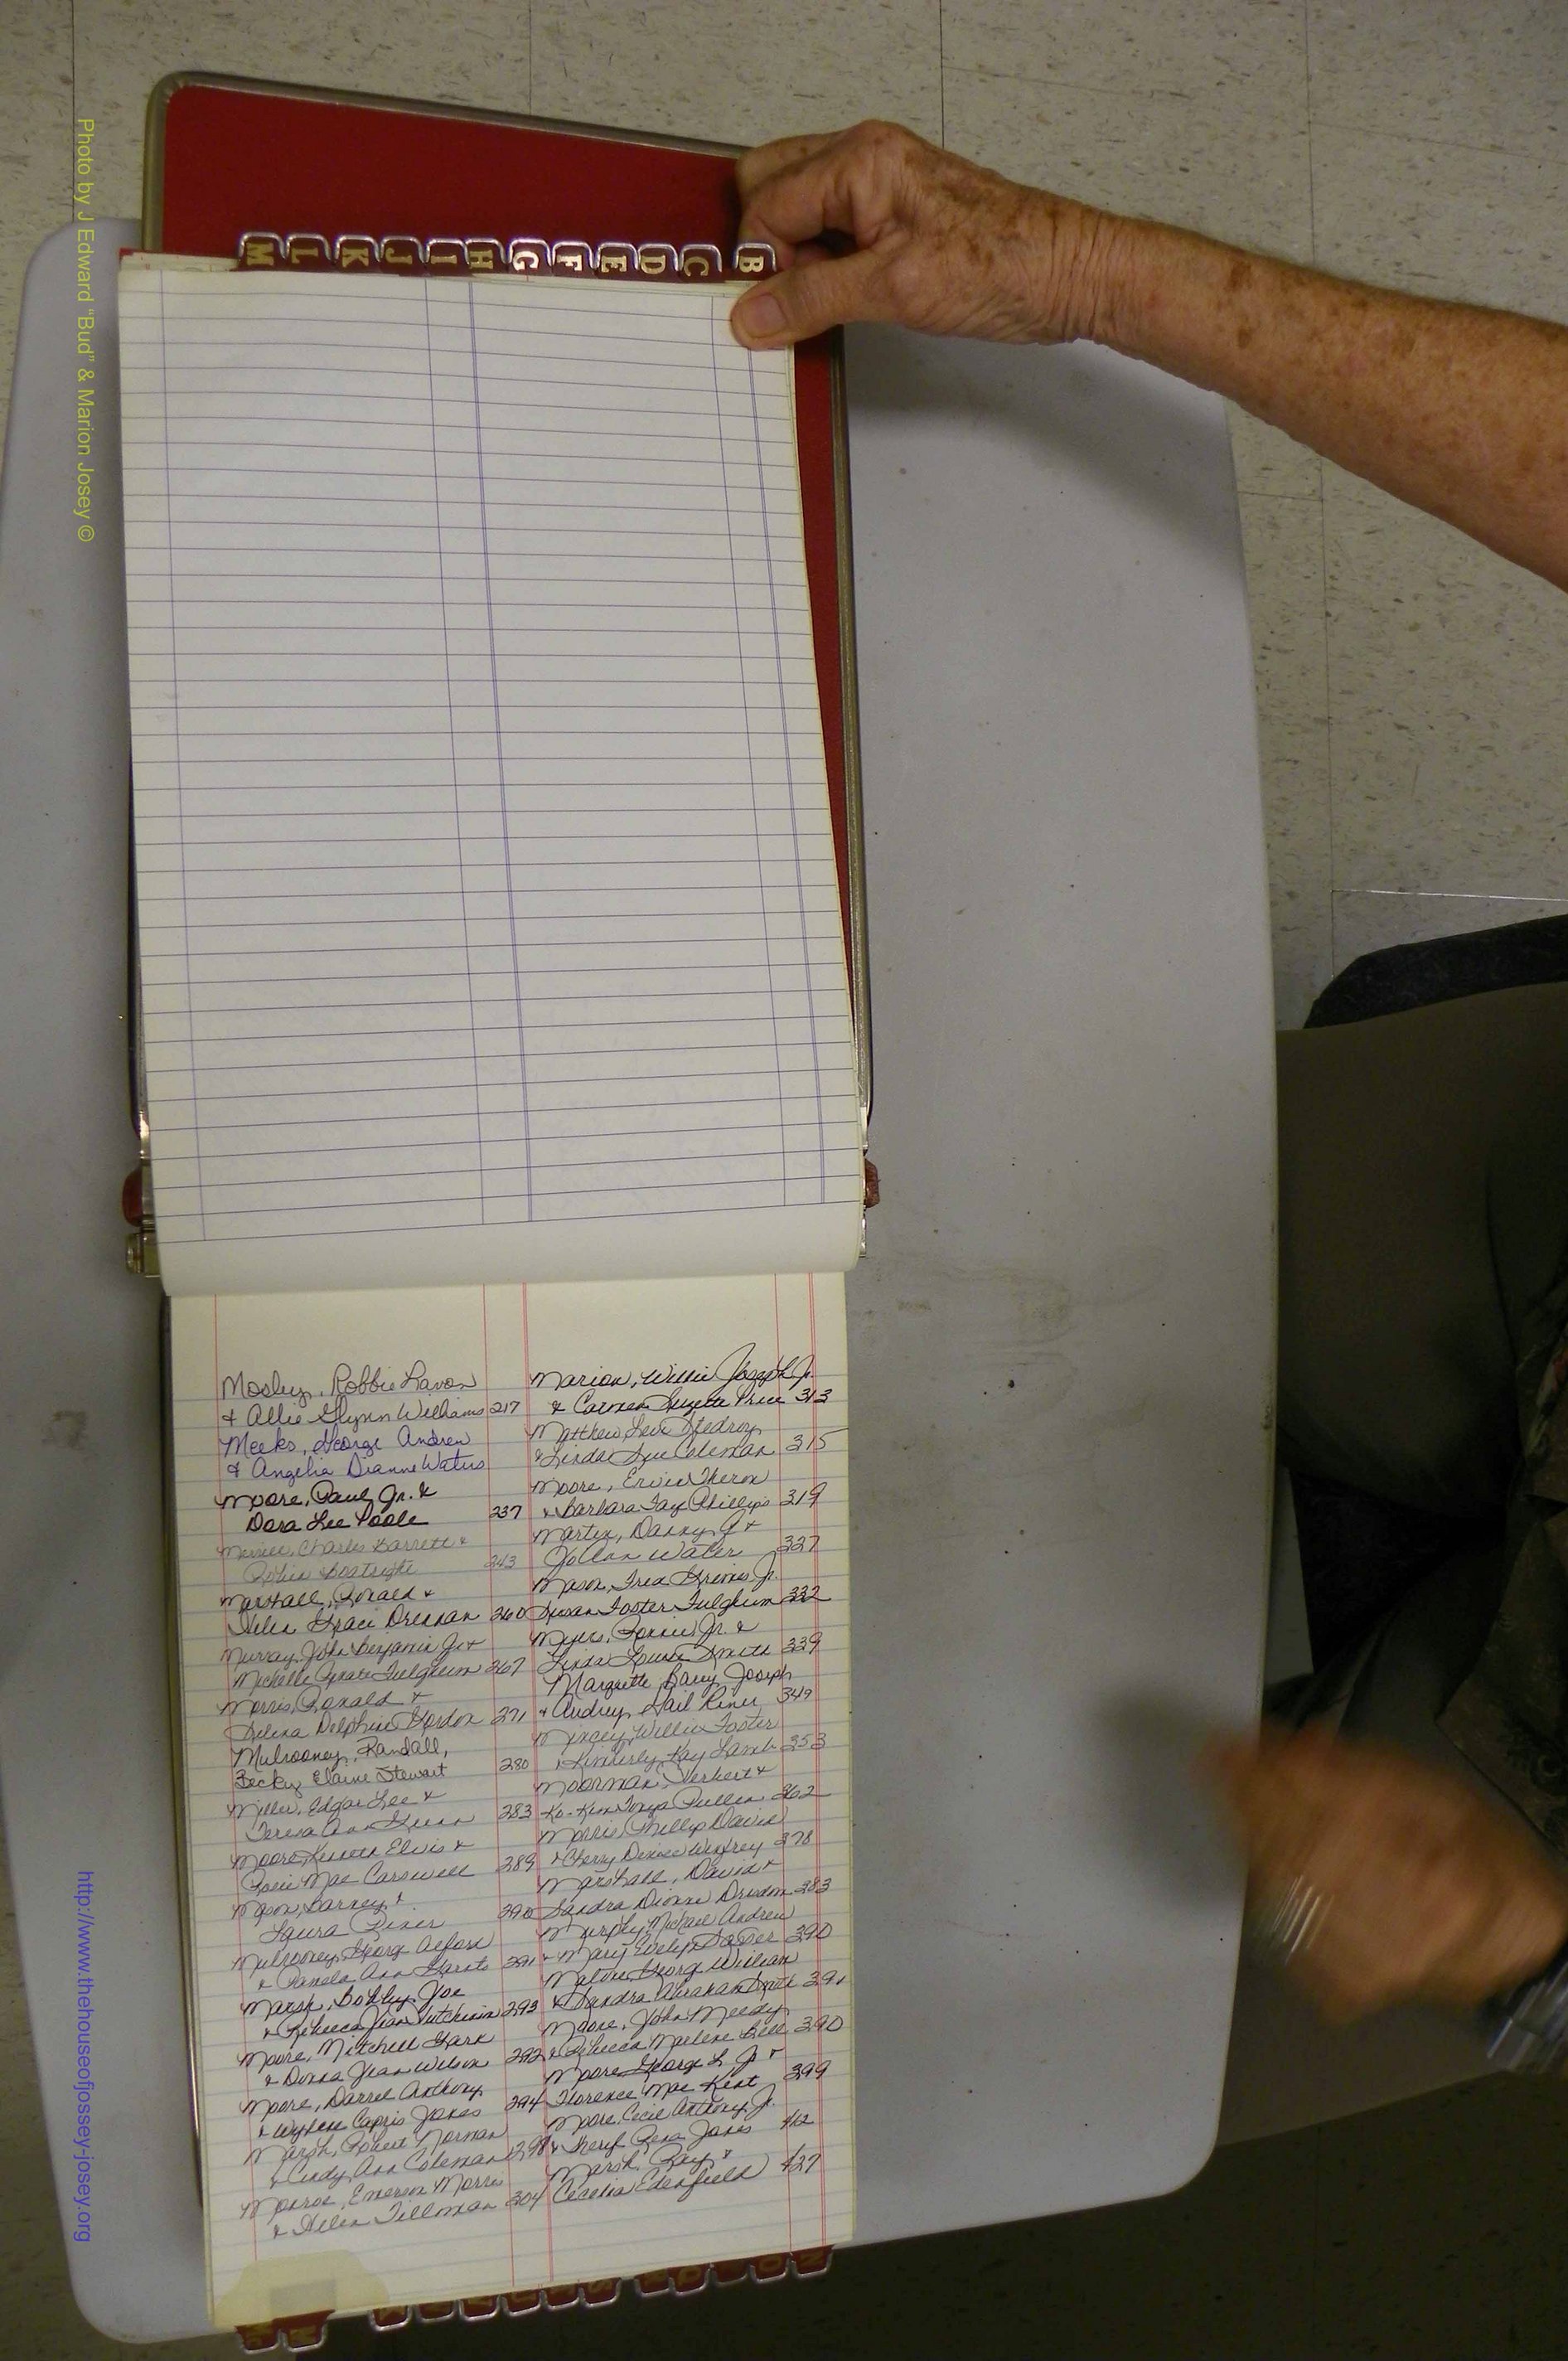 Photo by J Edward "Bud" & Marion Josey ©
M L K J I H G F E D C B
Mosley, Robbie Lavon
& Allie Glynn Williams 217
Meeks, George Andrew
& Angelia Dianne Waters
Moore, Paul Jr. &
Dora Lee Poole 237
Charles Barrett &
Robin Boatright 243
Marshall, Ronald &
Helen Graci Drennan 260
Murray, John Benjamin Jr. &
Michelle Fulghum 267
Morris, Ronald &
Delphine Gordon 271
Mulrooney, Randall,
Becky Elaine Stewart 280
Miller, Edgar Lee &
Teresa Ann 283
Moore, Kenneth Elvis &
Rosie Mae Carswell 289
Mason, Barney &
Laura Riner 290
Mulrooney, George Alford
& Pamela Ann 291
Marsh, Bobby Joe
& Rebecca Jean Hutcheson 293
Moore, Mitchell Mark
& Donna Jean Wilson 292
Moore, Darrel Anthony
& Capris Jones 294
Marsh, Robert Norman
& Cindy Ann Coleman 298
Monroe, Emerson Morris
& Helen Tillman 304
Marion, Willie Joseph Jr.
& Carmen Suzette Price 313
Matthew, Levi
& Linda Sue Coleman 315
Moore, Ervin Theron
& Barbara Fay Phillips 319
Martin, Danny &
JoAnn Water 327
Mason, Fred Grimes Jr.
Susan Foster Fulghum 332
Myers, Ronnie, Jr. &
Linda Louise Smith 339
Marquette, Barry Joseph
& Audrey Gail Riner 349
Mincey, Willie Foster
& Kimberly Kay Lamb 353
Moorman, Herbert &
Tonya Pullen 362
Morris, Phillip David
& Cherry Denise 378
Marshall, David &
Sandra Dionne 383
Murphy, Michael Andrew
& Mary Evelyn 390
George William
& Sandra Smith 391
Moore, John
& Rebecca Marlene Bell 390
Moore, George L. Jr. &
Florence Mae Kent 399
Moore, Cecil Anthony, Jr.
& Rena Jones 412
Marsh, Ray &
Cecelia Edenfield 427
http://www.thehouseofjossey-josey.org